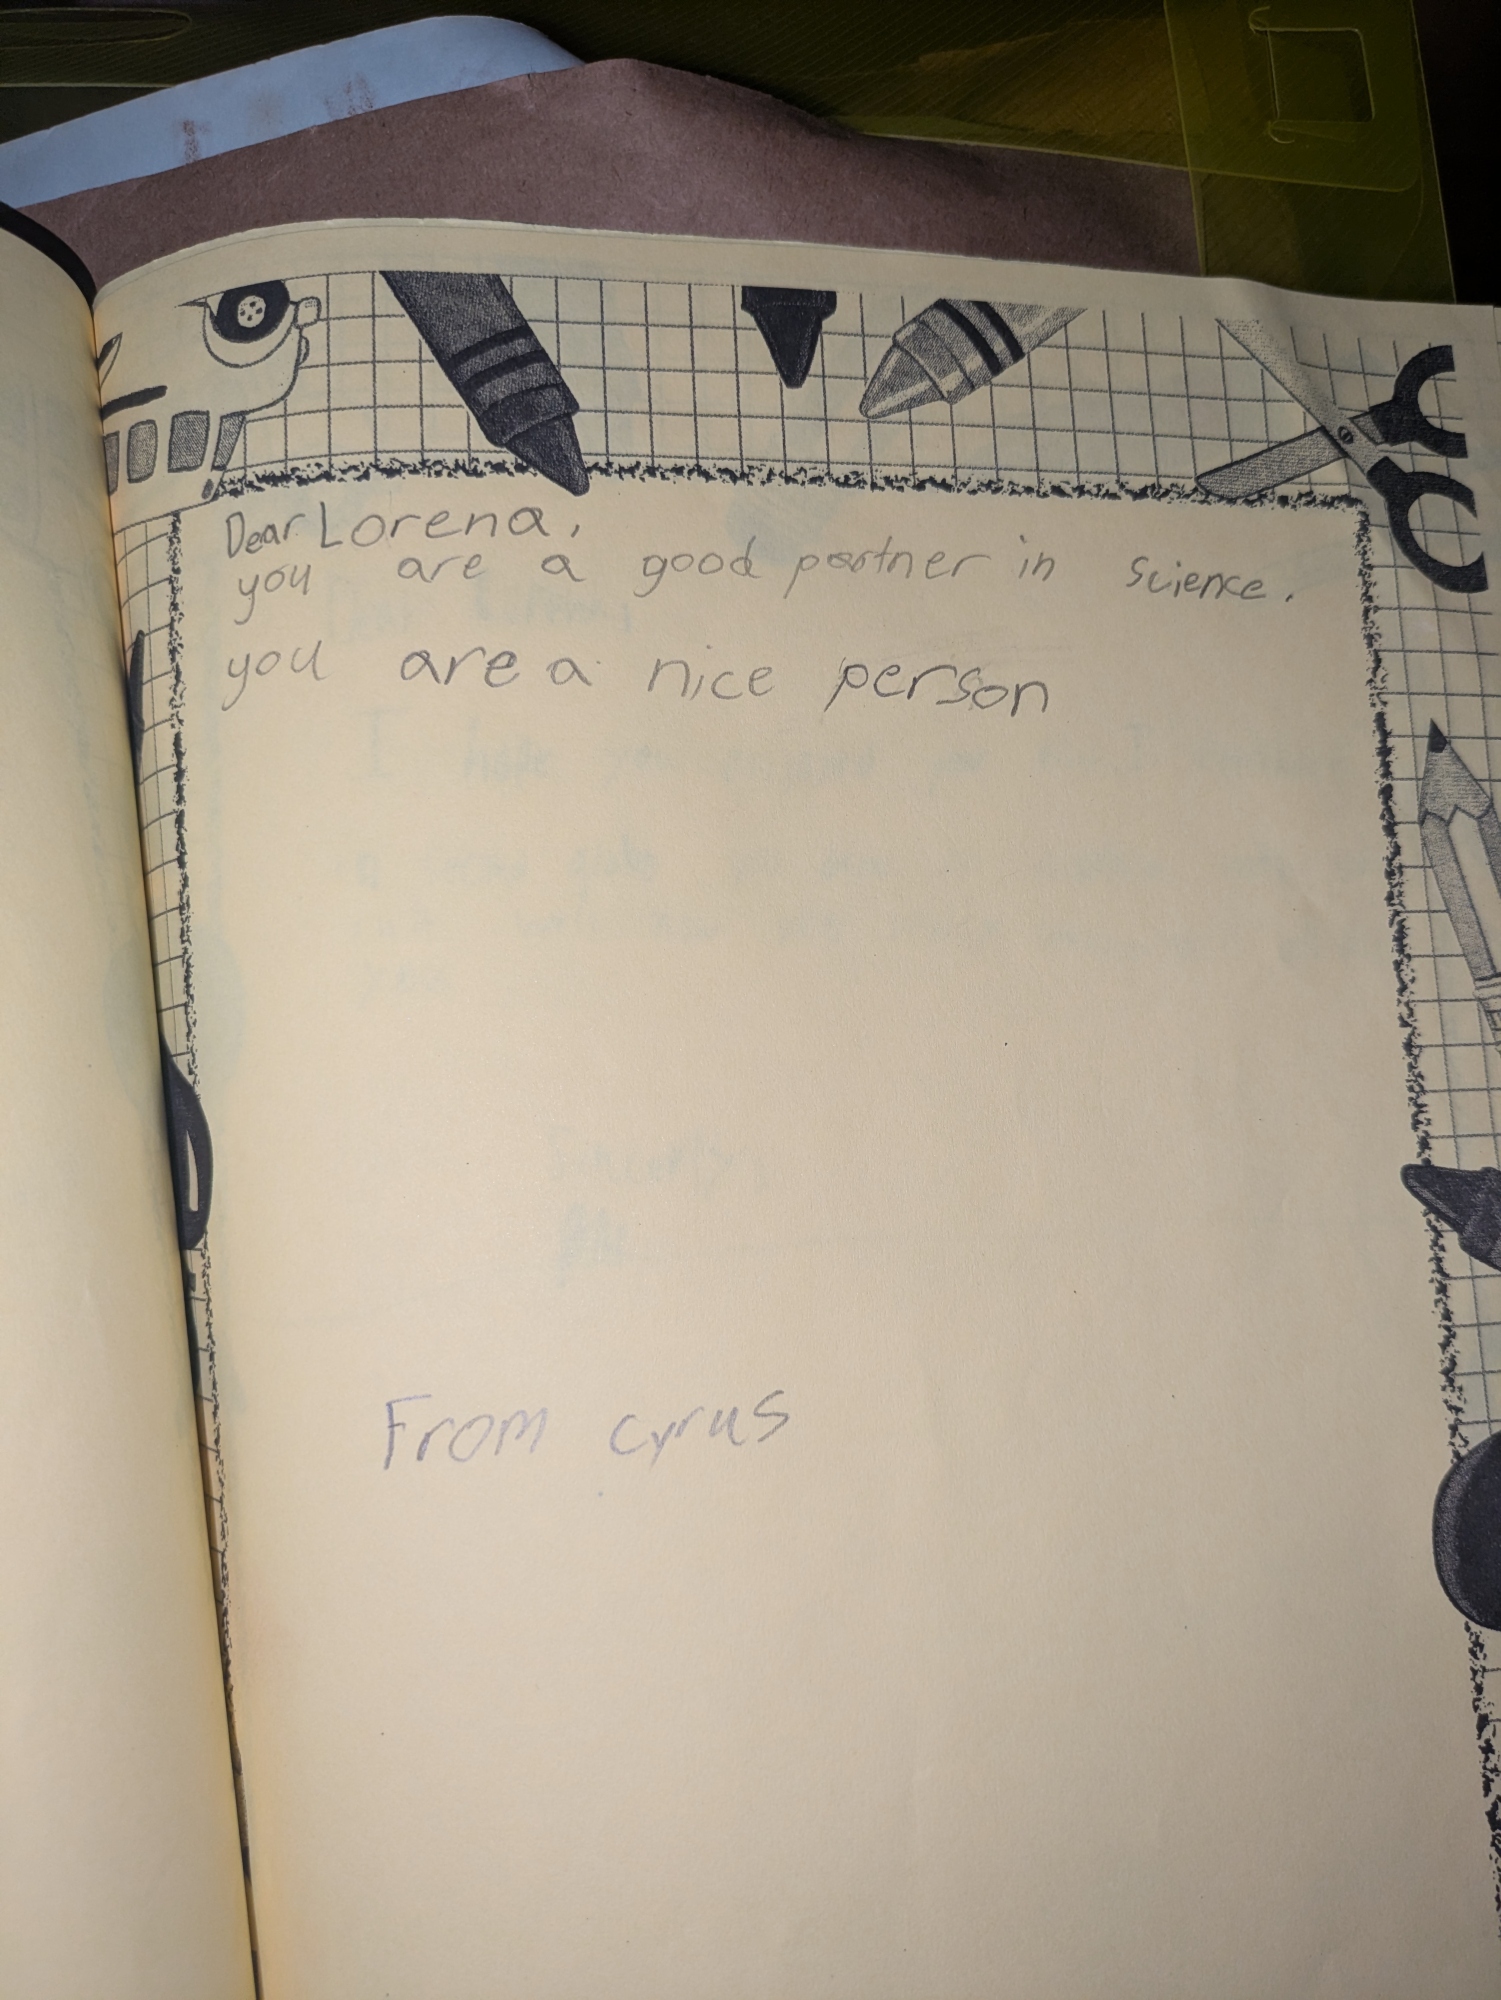 Dear Lorena,
you are a good partner in science.
you are a nice person
From cyrus